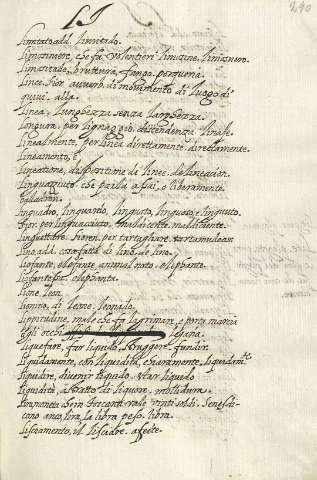 LI
240
Limitato add. limitado.
Limosiniere, che fa volontieri limosine, limosnero.
Limositade, bruttura, fango. porqueria.
Linci. Fior. avverb. di movimento di luogo di
quivi. alla.
Linea, Lunghezza senza larghezza.
Longura, per lignaggio, discendenza linaje.
Linealmente, per linea direttamente. directamente.
Lineamento, è
Lineatione, dispositione de linee. delineacion.
Linguacciuto. che parla assai, o liberamente
hablador.
Linguadro, linguardo, linguato, linguoso, e linguuto.
Fior. per linguacciuto, maldicente. maldiciente.
Linguettare. Fioren. per tartagliare. tartamudear.
Lino, add. cosa fatta di lino, de lino.
Liofante, elefante, animal noto. elephante.
Liofantessa. elephanta.
Lione. Leon.
Lionino, di leone. leonado.
Lippitudine, male che fa lagrimare, e porta marcia
agli occhi
Liquefare, far liquido, struggere. fundir.
Liquidamente, con liquidità, chiaramente. liquidamte.
Liquidire, divenir liquido. estar liquido
Liquidità, astratto di liquore. molidura.
Lira, moneta
vale vinti soldi.
lira, la libra peso. libra.
Lisciamento, il lisciare. afeite.